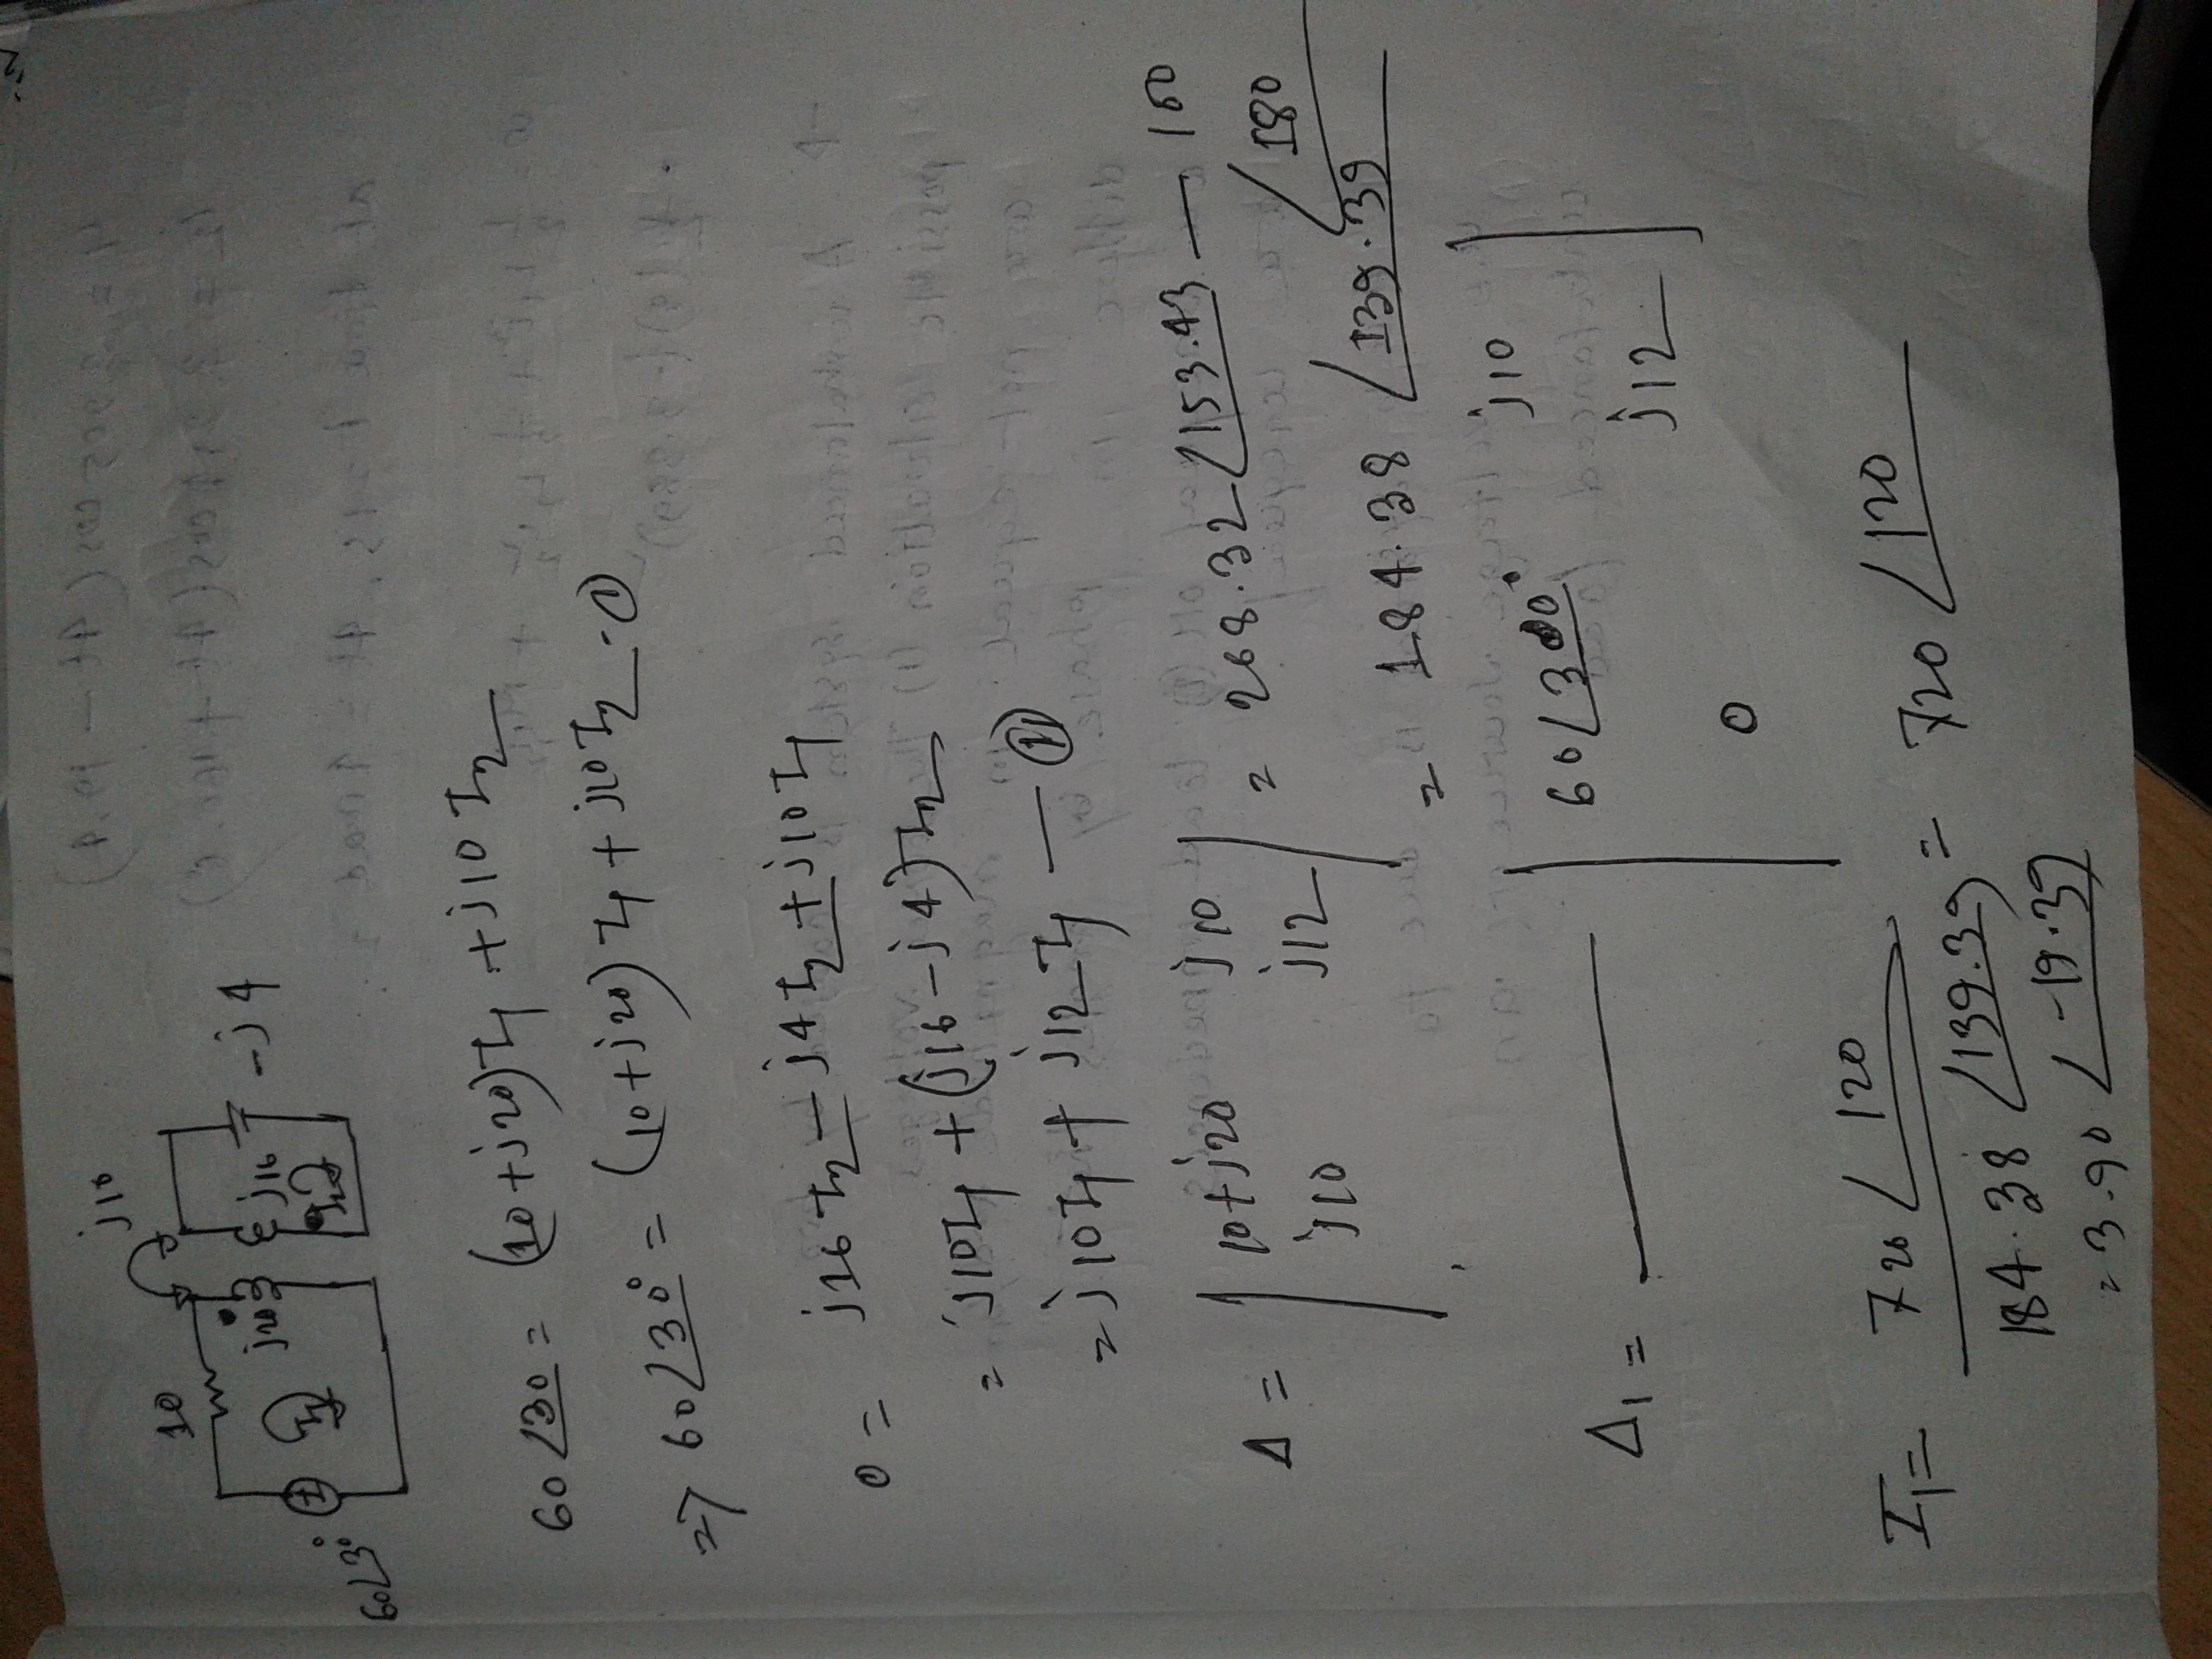 j10
10
j20
j16
-j4
60∠30°
I₁
I₂
60∠30 = (10+j20)I₁ + j10 I₂
=> 60∠30° = (10+j20) I₁ + j10 I₂ - ①
0 = j16 I₂ - j4 I₂ + j10 I₁
= j10I₁ + (j16-j4) I₂
= j10I₁ + j12 I₁ — ⑪
Δ = | 10+j20 j10 | = 268.32 ∠153.43 — 100 ∠180
| j10 j12 |
= 184.38 ∠139.39
Δ₁ = — | 60∠300° j10 |
| 0 j12 |
I₁ = 720 ∠120 / 184.38 ∠139.39 = 720 ∠120
= 3.90 ∠-19.39